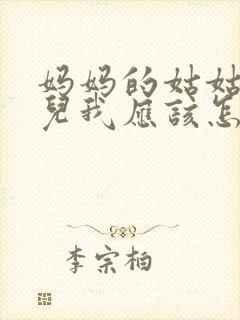 妈妈的姑姑
兒我應該怎
李宗柏